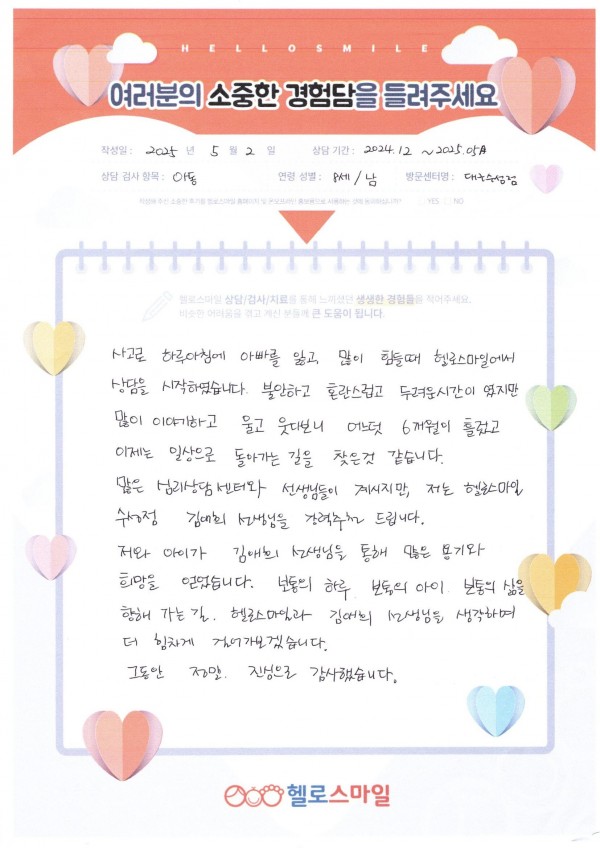 HELLOSMILE
여러분의 소중한 경험담을 들려주세요
작성일 : 2025 년 5 월 2 일 상담 기간 : 2024.12 ~ 2025.05月
상담 검사 항목 : 아동 연령 성별 : 8세 / 남 방문센터명 : 대구수성점
YES NO
헬로스마일 상담/검사/치료를 통해 느끼셨던 생생한 경험들을 적어주세요.
비슷한 어려움을 겪고 계신 분들께 큰 도움이 됩니다.
사고로 하루아침에 아빠를 잃고, 많이 힘들때 헬로스마일에서
상담을 시작하였습니다. 불안하고 혼란스럽고 두려운시간이 였지만
많이 이야기하고 울고 웃다보니 어느덧 6개월이 흘렀고
이제는 일상으로 돌아가는 길을 찾은것 같습니다.
많은 심리상담 센터와 선생님들이 계시지만, 저는 헬로스마일
수성점 김애희 선생님을 강력추천 드립니다.
저와 아이가 김애희 선생님을 통해 많은 용기와
희망을 얻었습니다. 보통의 하루. 보통의 아이. 보통의 삶을
향해 가는길. 헬로스마일과 김애희 선생님을 생각하며
더 힘차게 걸어가보겠습니다.
그동안 정말. 진심으로 감사했습니다.
헬로스마일